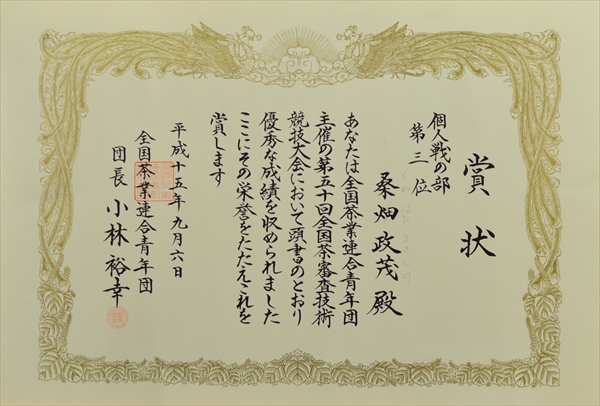 賞状
個人戦の部
第三位
桑畑政茂殿
あなたは全国茶業連合青年団
主催の第五十回全国茶審査技術
競技大会において頭書のとおり
優秀な成績を収められました
ここにその栄誉をたたえこれを
賞します
平成十五年九月六日
全国茶業連合青年団
団長 小林裕幸